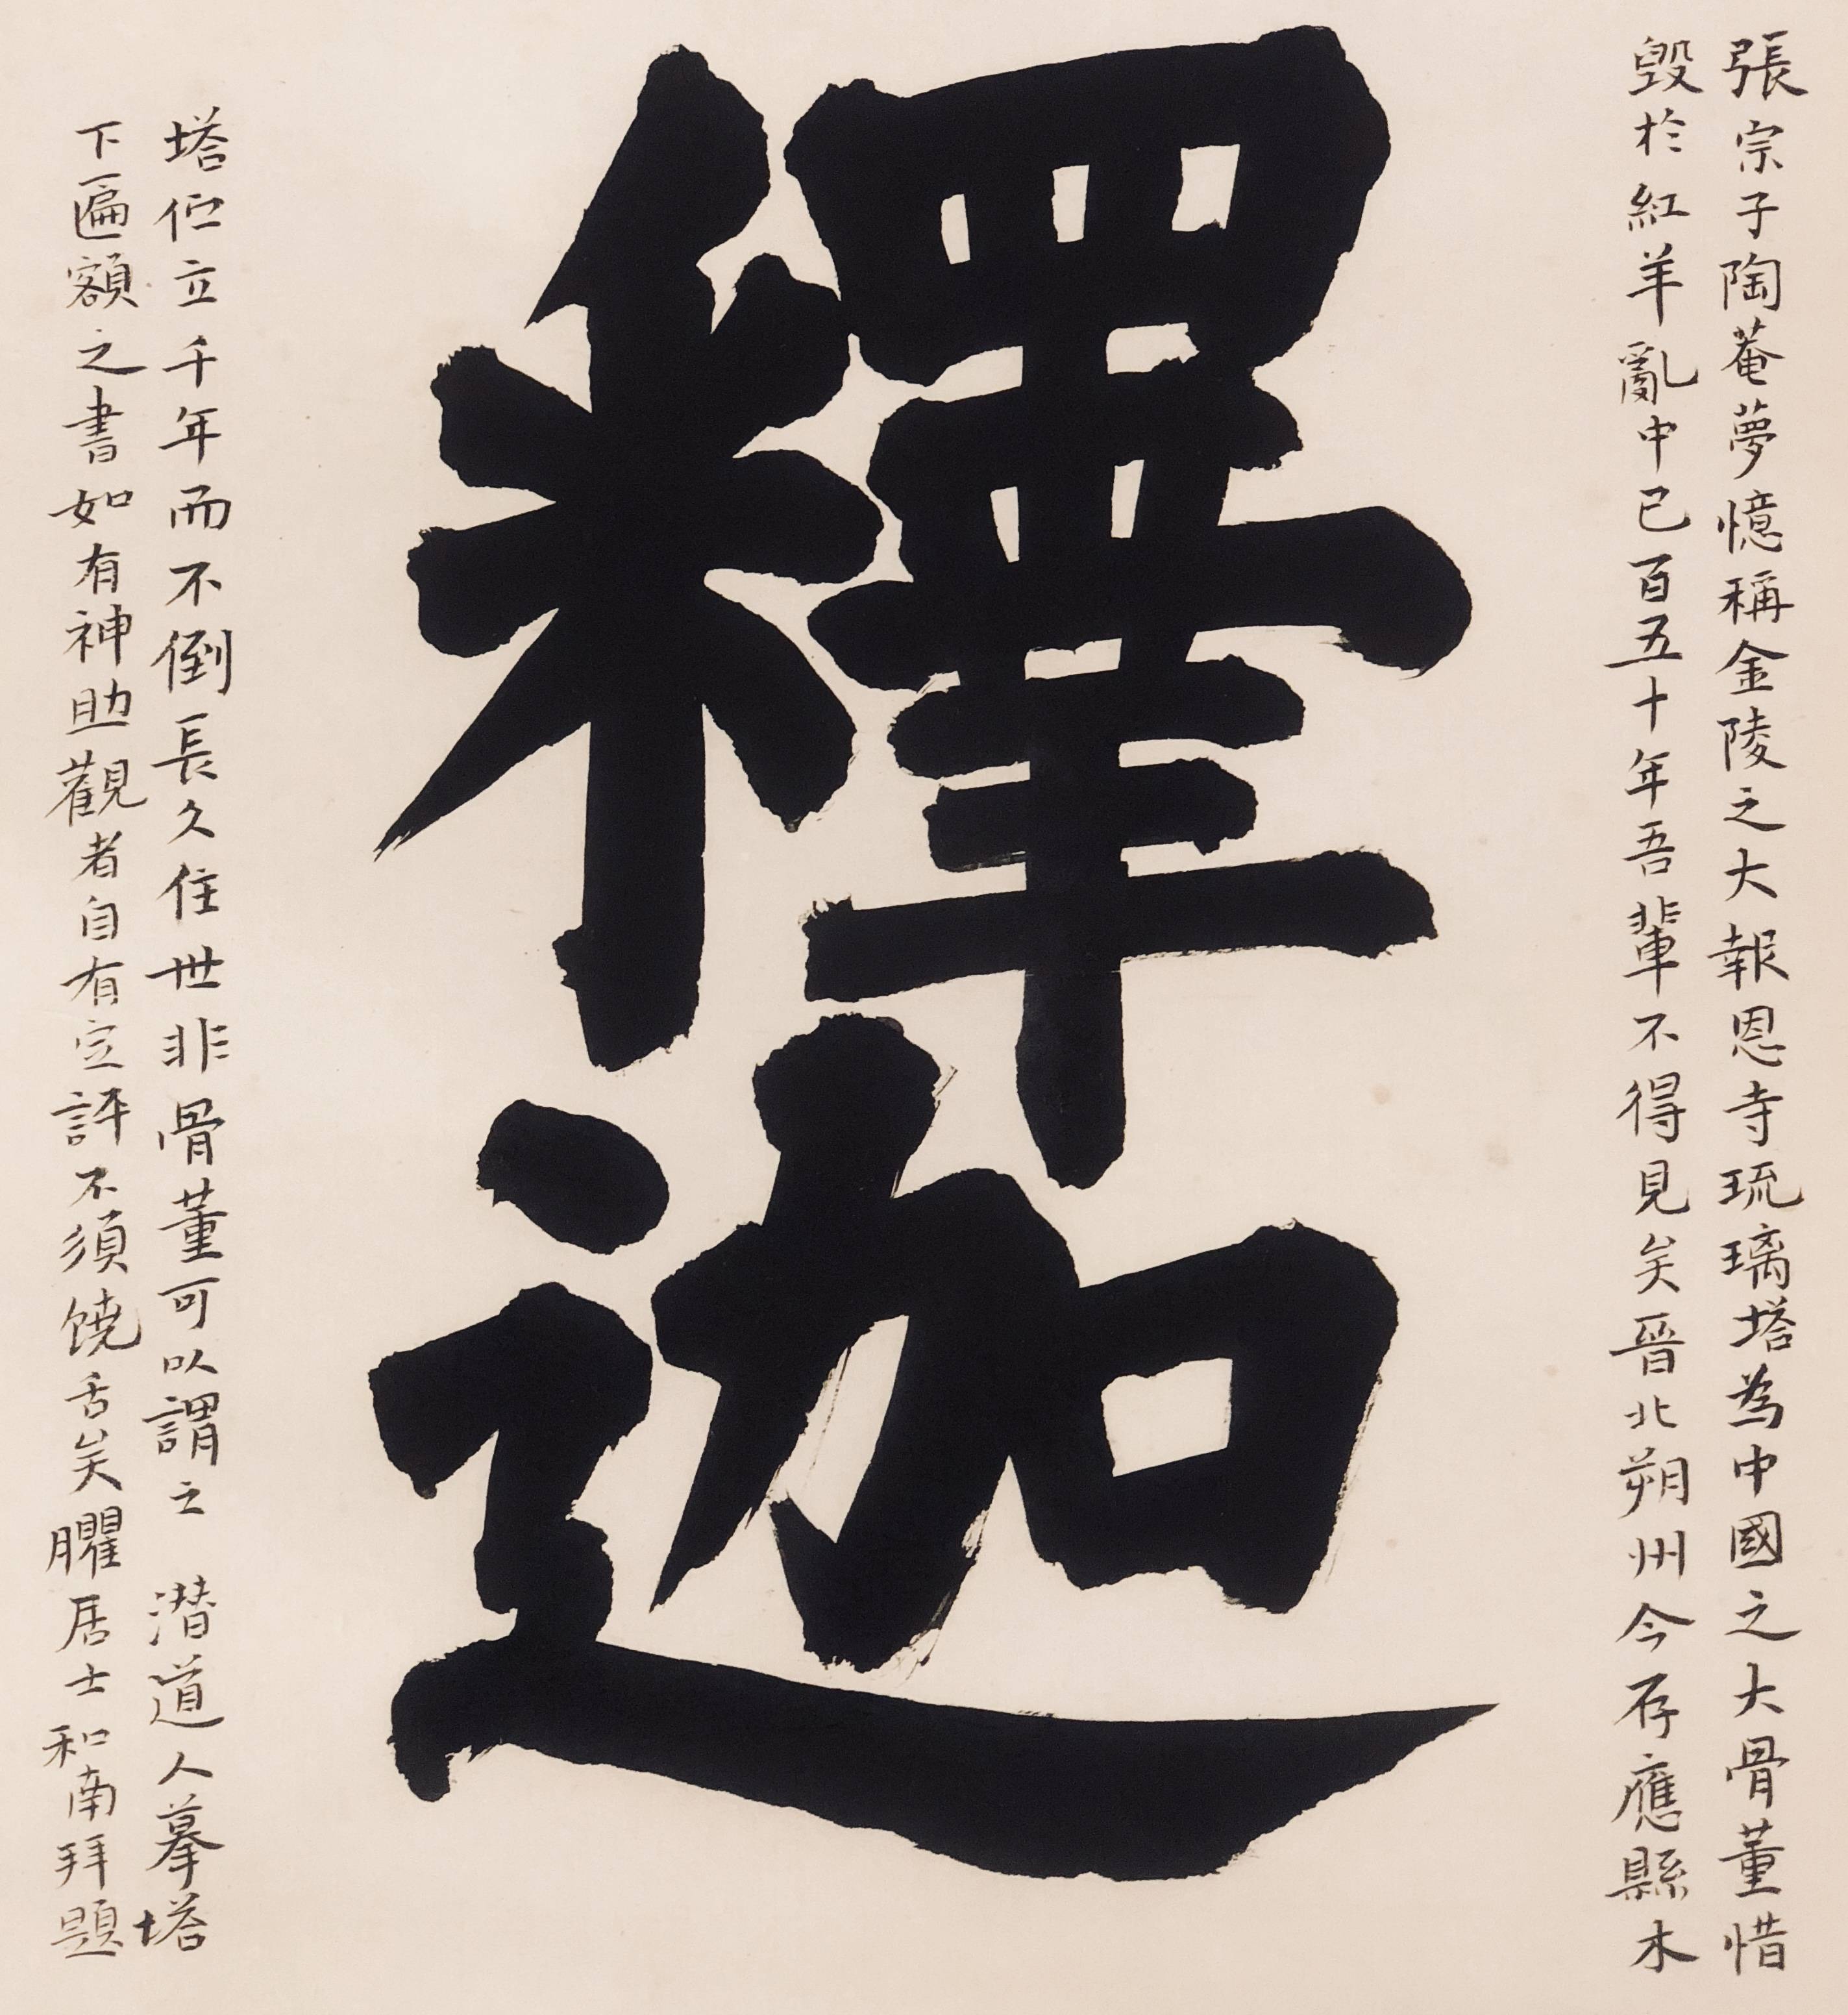 張宗子陶菴夢憶稱金陵之大報恩寺琉璃塔為中國之大骨董惜
毀於紅羊亂中已百五十年吾輩不得見矣晉北朔州今存應縣木
釋迦
塔伫立千年而不倒長久住世非骨董可以謂之 潜道人摹塔
下匾額之書如有神助觀者自有定評不須饒舌矣臞居士和南拜題